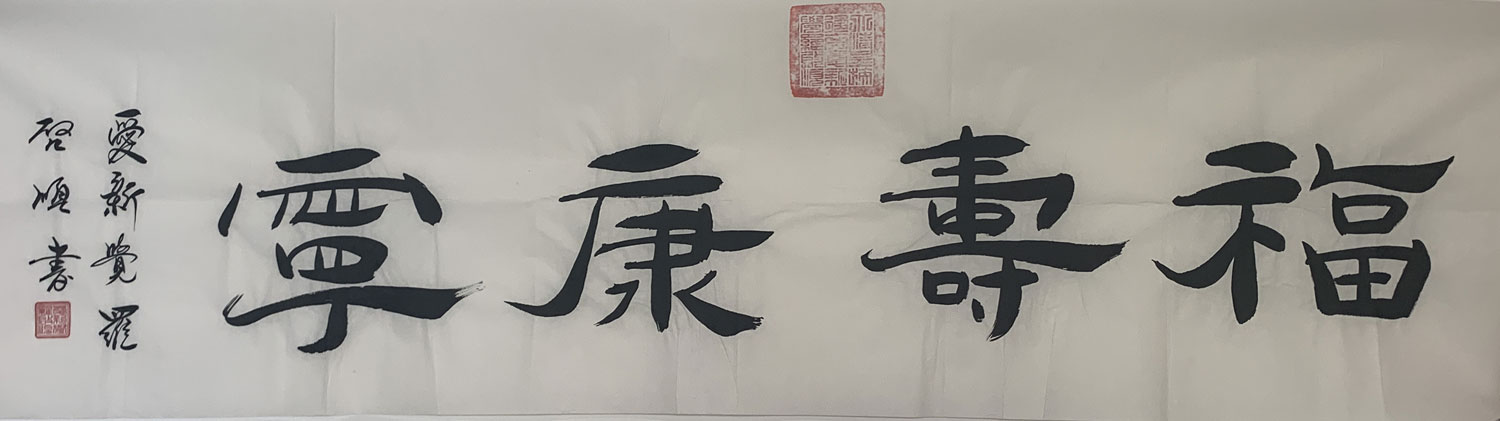 福壽康寧
愛新覺羅
啓順書